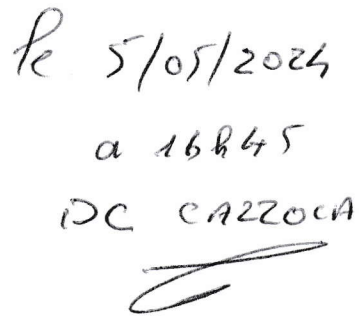 le 5/05/2024
a 16h45
DC CAZZOCA